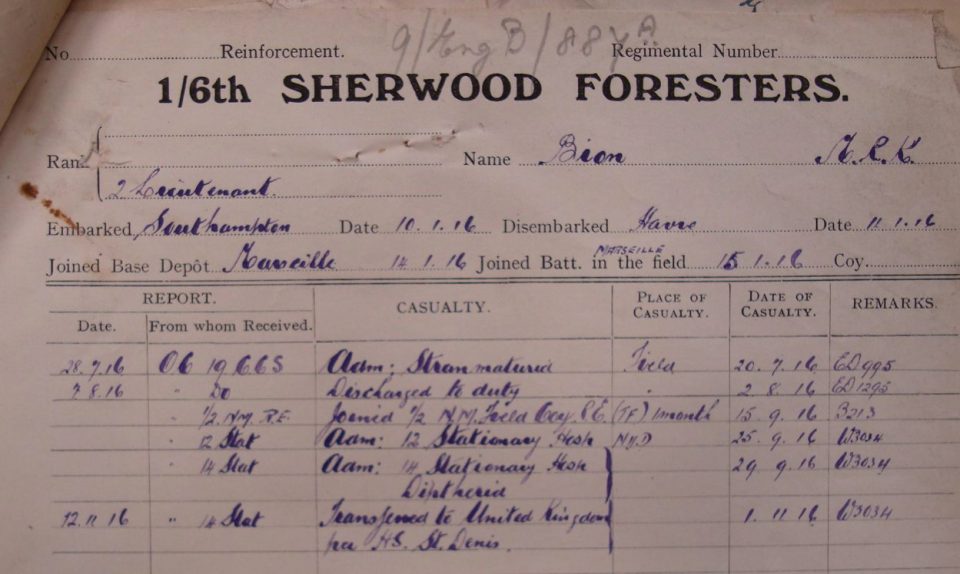 9/Eng B/887A
No Reinforcement. Regimental Number
1/6th SHERWOOD FORESTERS.
Rank Name Bion
2 Lieutenant.
Embarked Southampton Date 10.1.16 Disembarked Havre Date 11.1.16
MARSEILLE
Joined Base Depôt Marseille 14.1.16 Joined Batt. in the field 15.1.16 Coy.
REPORT. CASUALTY. PLACE OF CASUALTY. DATE OF CASUALTY. REMARKS.
Date. From whom Received.
28.7.16 OC 19 CCS Adm: Field 20.7.16 ED995
7.8.16 " Do Discharged to duty " 2.8.16 ED1295
" 1/2 N.M. R.E. Joined 1/2 N.M. Field Coy. R.E. (TF) 1 month 15.9.16 3213
" 12 Stat Adm: 12 Stationary Hosp N.Y.D 25.9.16 W3034
" 14 Stat Adm: 14 Stationary Hosp 29.9.16 W3034
Diptheria
12.11.16 " 14 Stat Transferred to United Kingdom 1.11.16 W3034
per H.S. St. Denis.